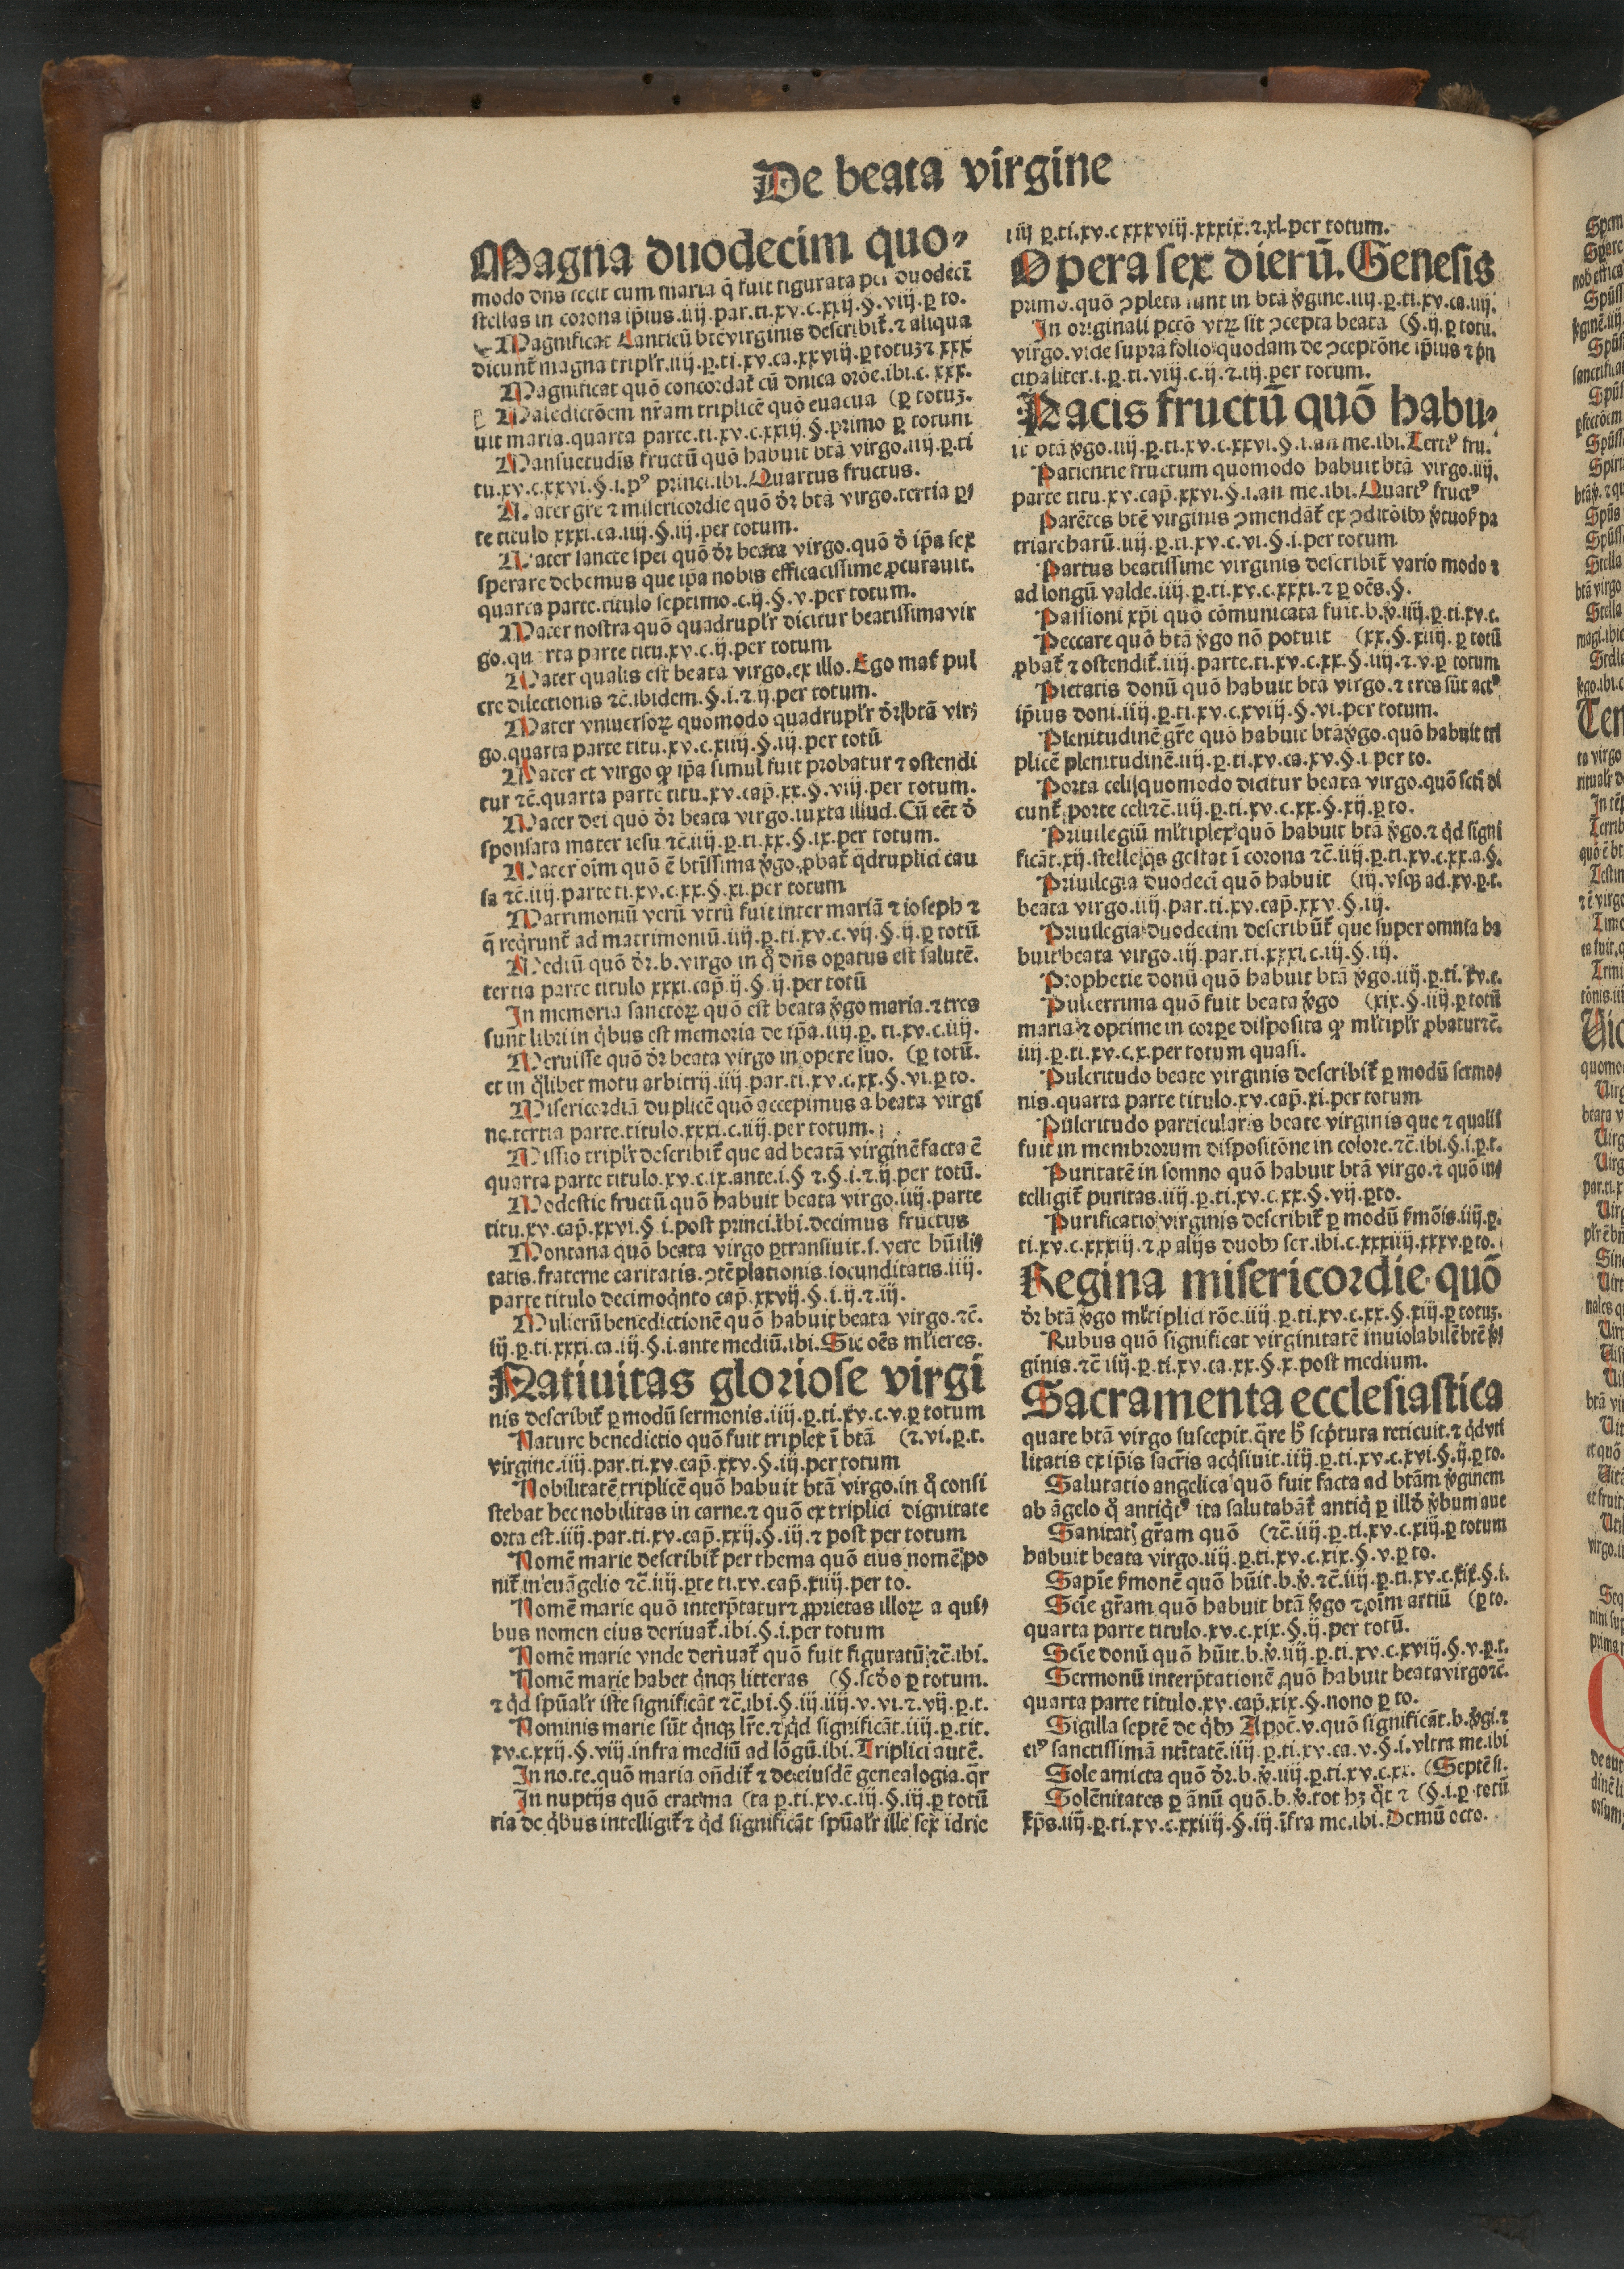 De beata virgine
Magna duodecim quo⸗
modo dñs fecit cum maria q̃ fuit figurata per duodecĩ
stellas in corona ip̃ius.iiij.par.ti.xv.c.xxij.§.viij.ꝑ to.
Magnificat Canticũ btẽ virginis describit᷑.⁊ aliqua
dicunt᷑ magna triplr̃.iiij.ꝑ.ti.xv.ca.xxviij.ꝑ totuꝫ ⁊ xxx
Magnificat quõ concordat᷑ cũ dñica orõe.ibi.c.xxx.
Maledictõem nr̃am triplicẽ quõ euacua (ꝑ totuꝫ.
uit maria.quarta parte.ti.xv.c.xxiij.§.primo ꝑ totum
Mansuetudĩs fructũ quõ habuit btã virgo.iiij.ꝑ.ti
tu.xv.c.xxvi.§.i.pꝰ princi.ibi.Quartus fructus.
Mater grẽ ⁊ misericordie quõ dr̃ btã virgo.tertia p⸗
te titulo xxxi.ca.iiij.§.iij.per totum.
Mater sancte spei quõ dr̃ beata virgo.quõ d̓ ip̃a sex
sperare debemus que ip̃a nobis efficacissime ꝓcurauit.
quarta parte.titulo septimo.c.ij.§.v.per totum.
Mater nostra quõ quadruplr̃ dicitur beatissima vir
go.quarta parte titu.xv.c.ij.per totum
Mater qualis est beata virgo.ex illo.Ego mat᷑ pul
cre dilectionis ⁊c̃.ibidem.§.i.⁊.ij.per totum.
Mater vniuersoꝝ quomodo quadruplr̃ dr̃ btã vir⸗
go.quarta parte titu.xv.c.xiiij.§.iij.per totũ
Mater et virgo ꝙ ip̃a simul fuit probatur ⁊ ostendi
tur ⁊c̃.quarta parte titu.xv.cap̃.xx.§.viij.per totum.
Mater dei quõ dr̃ beata virgo.iuxta illud.Cũ eẽt d̓
sponsata mater iesu ⁊c̃.iiij.ꝑ.ti.xx.§.ix.per totum.
Mater oĩm quõ ẽ btĩssima v̓go.ꝓbat᷑ q̃druplici cau
sa ⁊c̃.iiij.parte ti.xv.c.xx.§.xi.per totum
Matrimoniũ verũ vtrũ fuit inter mariã ⁊ ioseph ⁊
q̃ req̓runt᷑ ad matrimoniũ.iiij.ꝑ.ti.xv.c.vij.§.ij.ꝑ totũ
Mediũ quõ dr̃.b.virgo in q̊ dñs oꝑatus est salutẽ.
tertia parte titulo xxxi.cap̃.ij.§.ij.per totũ
In memoria sanctoꝝ quõ est beata v̓go maria.⁊ tres
sunt libri in q̓bus est memoria de ip̃a.iiij.ꝑ.ti.xv.c.iij.
Meruisse quõ dr̃ beata virgo in opere suo. (ꝑ totũ.
et in q̊libet motu arbitrij.iiij.par.ti.xv.c.xx.§.vi.ꝑ to.
Misericordiã duplicẽ quõ accepimus a beata virgi
ne.tertia parte.titulo.xxxi.c.iiij.per totum.
Missio triplr̃ describit᷑ que ad beatã virginẽ facta ẽ
quarta parte titulo.xv.c.ix.ante.i.§ ⁊.§.i.⁊.ij.per totũ.
Modestie fructũ quõ habuit beata virgo.iiij.parte
titu.xv.cap̃.xxvi.§ i.post princi.ibi.decimus fructus
Montana quõ beata virgo ꝑtransiuit.s.vere hũili⸗
tatis.fraterne caritatis.ꝯtẽplationis.iocunditatis.iiij.
parte titulo decimoq̓nto cap̃.xxvij.§.i.ij.⁊.iij.
Mulierũ benedictionẽ quõ habuit beata virgo.⁊c̃.
iij.ꝑ.ti.xxxi.ca.iij.§.i.ante mediũ.ibi.Sic oẽs ml̓ieres.
Natiuitas gloriose virgi
nis describit᷑ ꝑ modũ sermonis.iiij.ꝑ.ti.xv.c.v.ꝑ totum
Nature benedictio quõ fuit triplex ĩ btã (⁊.vi.ꝑ.t.
virgine.iiij.par.ti.xv.cap̃.xxv.§.iij.per totum
Nobilitatẽ triplicẽ quõ habuit btã virgo.in q̊ consi
stebat hec nobilitas in carne.⁊ quõ ex triplici dignitate
orta est.iiij.par.ti.xv.cap̃.xxij.§.iij.⁊ post per totum
Nomẽ marie describit᷑ per thema quõ eius nomẽ po
nit᷑ in euãgelio ⁊c̃.iiij.ꝑte ti.xv.cap̃.xiiij.per to.
Nomẽ marie quõ interp̃tatur ⁊ ꝓprietas illoꝝ a qui⸗
bus nomen eius deriuat᷑.ibi.§.i.per totum
Nomẽ marie vnde deriuat᷑ quõ fuit figuratũ ⁊c̃.ibi.
Nomẽ marie habet q̓nqꝫ litteras (§.scd̓o ꝑ totum.
⁊ q̓d sp̃ualr̃ iste significãt ⁊c̃.ibi.§.iij.iiij.v.vi.⁊.vij.ꝑ.t.
Nominis marie sũt q̓nqꝫ lr̃e.⁊ q̓d significãt.iiij.ꝑ.tit.
xv.c.xxij.§.viij.infra mediũ ad lõgũ.ibi.Triplici autẽ.
In no.te.quõ maria oñdit᷑ ⁊ de eiusdẽ genealogia.q̃r
In nuptijs quõ erat ma (ta ꝑ.ti.xv.c.iij.§.iij.ꝑ totũ
ria de q̓bus intelligit᷑ ⁊ q̓d significãt sp̃ualr̃ ille sex idrie
iiij ꝑ.ti.xv.c xxxviij.xxxix.⁊.xl.per totum.
Opera sex dierũ.Genesis
primo.quõ ꝯpleta sunt in btã v̓gine.iiij.ꝑ.ti.xv.ca.iiij.
In originali pctõ vtꝝ sit ꝯcepta beata (§.ij.ꝑ totũ.
virgo.vide supra folio quodam de ꝯceptõne ip̃ius ⁊ p̃n
cipaliter.i.ꝑ.ti.viij.c.ij.⁊.iij.per totum.
Pacis fructũ quõ habu⸗
it btã v̓go.iiij.ꝑ.ti.xv.c.xxvi.§.i.an me.ibi.Tertiꝰ fru.
Patientie fructum quomodo habuit btã virgo.iiij.
parte titu.xv.cap̃.xxvi.§.i.an me.ibi.Quartꝰ fructꝰ
Parẽtes btẽ virginis ꝯmendãt᷑ ex ꝯditõibꝰ v̓tuoꝝ pa
triarcharũ.iiij.ꝑ.ti.xv.c.vi.§.i.per totum
Partus beatissime virginis describit᷑ vario modo ⁊
ad longũ valde.iiij.ꝑ.ti.xv.c.xxxi.⁊ ꝑ oẽs.§.
Passioni xp̃i quõ cõmunicata fuit.b.v̓.iiij.ꝑ.ti.xv.c.
Peccare quõ btã v̓go nõ potuit (xx.§.xiiij.ꝑ totũ
ꝓbat᷑ ⁊ ostendit᷑.iiij.parte.ti.xv.c.xx.§.iiij.⁊.v.ꝑ totum
Pietatis donũ quõ habuit btã virgo.⁊ tres sũt actꝰ
ip̃ius doni.iiij.ꝑ.ti.xv.c.xviij.§.vi.per totum.
Plenitudinẽ gr̃e quõ habuit btã v̓go.quõ habuit tri
plicẽ plenitudinẽ.iiij.ꝑ.ti.xv.ca.xv.§.i.per to.
Porta celi quomodo dicitur beata virgo.quõ scti di
cunt᷑ porte celi ⁊c̃.iiij.ꝑ.ti.xv.c.xx.§.xij.ꝑ to.
Priuilegiũ ml̓tiplex quõ habuit btã v̓go.⁊ q̓d signi
ficãt.xij.stelle q̃s gestat ĩ corona ⁊c̃.iiij.ꝑ.ti.xv.c.xx.a.§.
Priuilegia duodeci quõ habuit (iij.vsqꝫ ad.xv.ꝑ.t.
beata virgo.iiij.par.ti.xv.cap̃.xxv.§.iij.
Priuilegia duodecim describũt᷑ que super omnia ha
buit beata virgo.iij.par.ti.xxxi.c.iij.§.iij.
Prophetie donũ quõ habuit btã v̓go.iiij.ꝑ.ti.xv.c.
Pulcerrima quõ fuit beata v̓go (xix.§.iiij.ꝑ totũ
maria ⁊ optime in corꝑe disposita ꝙ ml̓tiplr̃ ꝓbatur ⁊c̃.
iiij.ꝑ.ti.xv.c.x.per totum quasi.
Pulcritudo beate virginis describit᷑ ꝑ modũ sermo⸗
nis.quarta parte titulo.xv.cap̃.xi.per totum
Pulcritudo particularis beate virginis que ⁊ qualis
fuit in membrorum dispositõne in colore.⁊c̃.ibi.§.i.ꝑ.t.
Puritatẽ in somno quõ habuit btã virgo.⁊ quõ in⸗
telligit᷑ puritas.iiij.ꝑ.ti.xv.c.xx.§.vij.ꝑto.
Purificatio virginis describit᷑ ꝑ modũ s̓mõis.iiij.ꝑ.
ti.xv.c.xxxiij.⁊ ꝑ alijs duobꝰ ser.ibi.c.xxxiiij.xxxv.ꝑ to.
Regina misericordie quõ
dr̃ btã v̓go ml̓tiplici rõe.iiij.ꝑ.ti.xv.c.xx.§.xiij.ꝑ totuꝫ.
Rubus quõ significat virginitatẽ inuiolabilẽ btẽ v̓⸗
ginis.⁊c̃ iiij.ꝑ.ti.xv.ca.xx.§.x.post medium.
Sacramenta ecclesiastica
quare btã virgo suscepit.q̃re hꝰ scp̃tura reticuit.⁊ q̓d vti
litatis ex ip̃is sacr̃is acq̓siuit.iiij.ꝑ.ti.xv.c.xvi.§.ij.ꝑ to.
Salutatio angelica quõ fuit facta ad btãm v̓ginem
ab ãgelo q̊ antiq̓tꝰ ita salutabãt᷑ antiq̓ ꝑ illd̓ v̓bum aue
Sanitatꝭ gr̃am quõ (⁊c̃.iiij.ꝑ.ti.xv.c.xiij.ꝑ totum
habuit beata virgo.iiij.ꝑ.ti.xv.c.xix.§.v.ꝑ to.
Sapiẽ s̓monẽ quõ hũit.b.v̓.⁊c̃.iiij.ꝑ.ti.xv.c.xix.§.i.
Sciẽ gr̃am quõ habuit btã v̓go ⁊ oĩm artiũ (ꝑ to.
quarta parte titulo.xv.c.xix.§.ij.per totũ.
Sciẽ donũ quõ hũit.b.v̓.iiij.ꝑ.ti.xv.c.xviij.§.v.ꝑ.t.
Sermonũ interp̃tationẽ quõ habuit beata virgo ⁊c̃.
quarta parte titulo.xv.cap̃.xix.§.nono ꝑ to.
Sigilla septẽ de q̓bꝰ Apoc̃.v.quõ significãt.b.v̓gi.⁊
eiꝰ sanctissimã ntĩtatẽ.iiij.ꝑ.ti.xv.ca.v.§.i.vltra me.ibi
Sole amicta quõ dr̃.b.v̓.iiij.ꝑ.ti.xv.c.xx. (Septẽ si.
Solẽnitates ꝑ ãnũ quõ.b.v̓.tot hꝫ q̊t ⁊ (§.i.ꝑ totũ
xp̃s.iiij.ꝑ.ti.xv.c.xxiiij.§.iij.ĩfra me.ibi.Demũ octo.